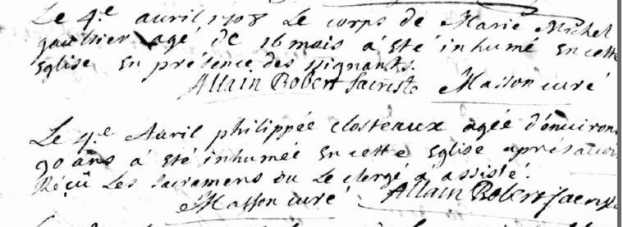 Le 4.e avril 1708 Le corps de Marie Michel
gaulthier agé de 16 mois à esté inhumé En cette
Eglise En présence des signants.
Allain Robert Sacriste Masson curé
Le 4e Avril philippée Closteaux agée d'environ
90 ans à été inhumée En cette Eglise apres avoir
Reçü Les sacramens ou Le clergé a assisté.
Masson curé Allain Robert Sacriste